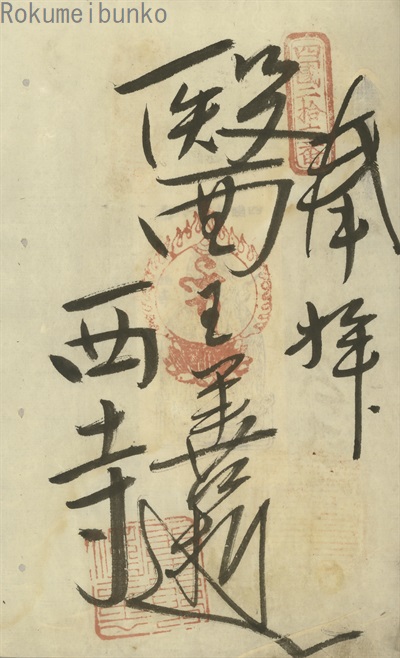 Rokumeibunko
四國二拾六番
奉拜
醫王善逝
西寺